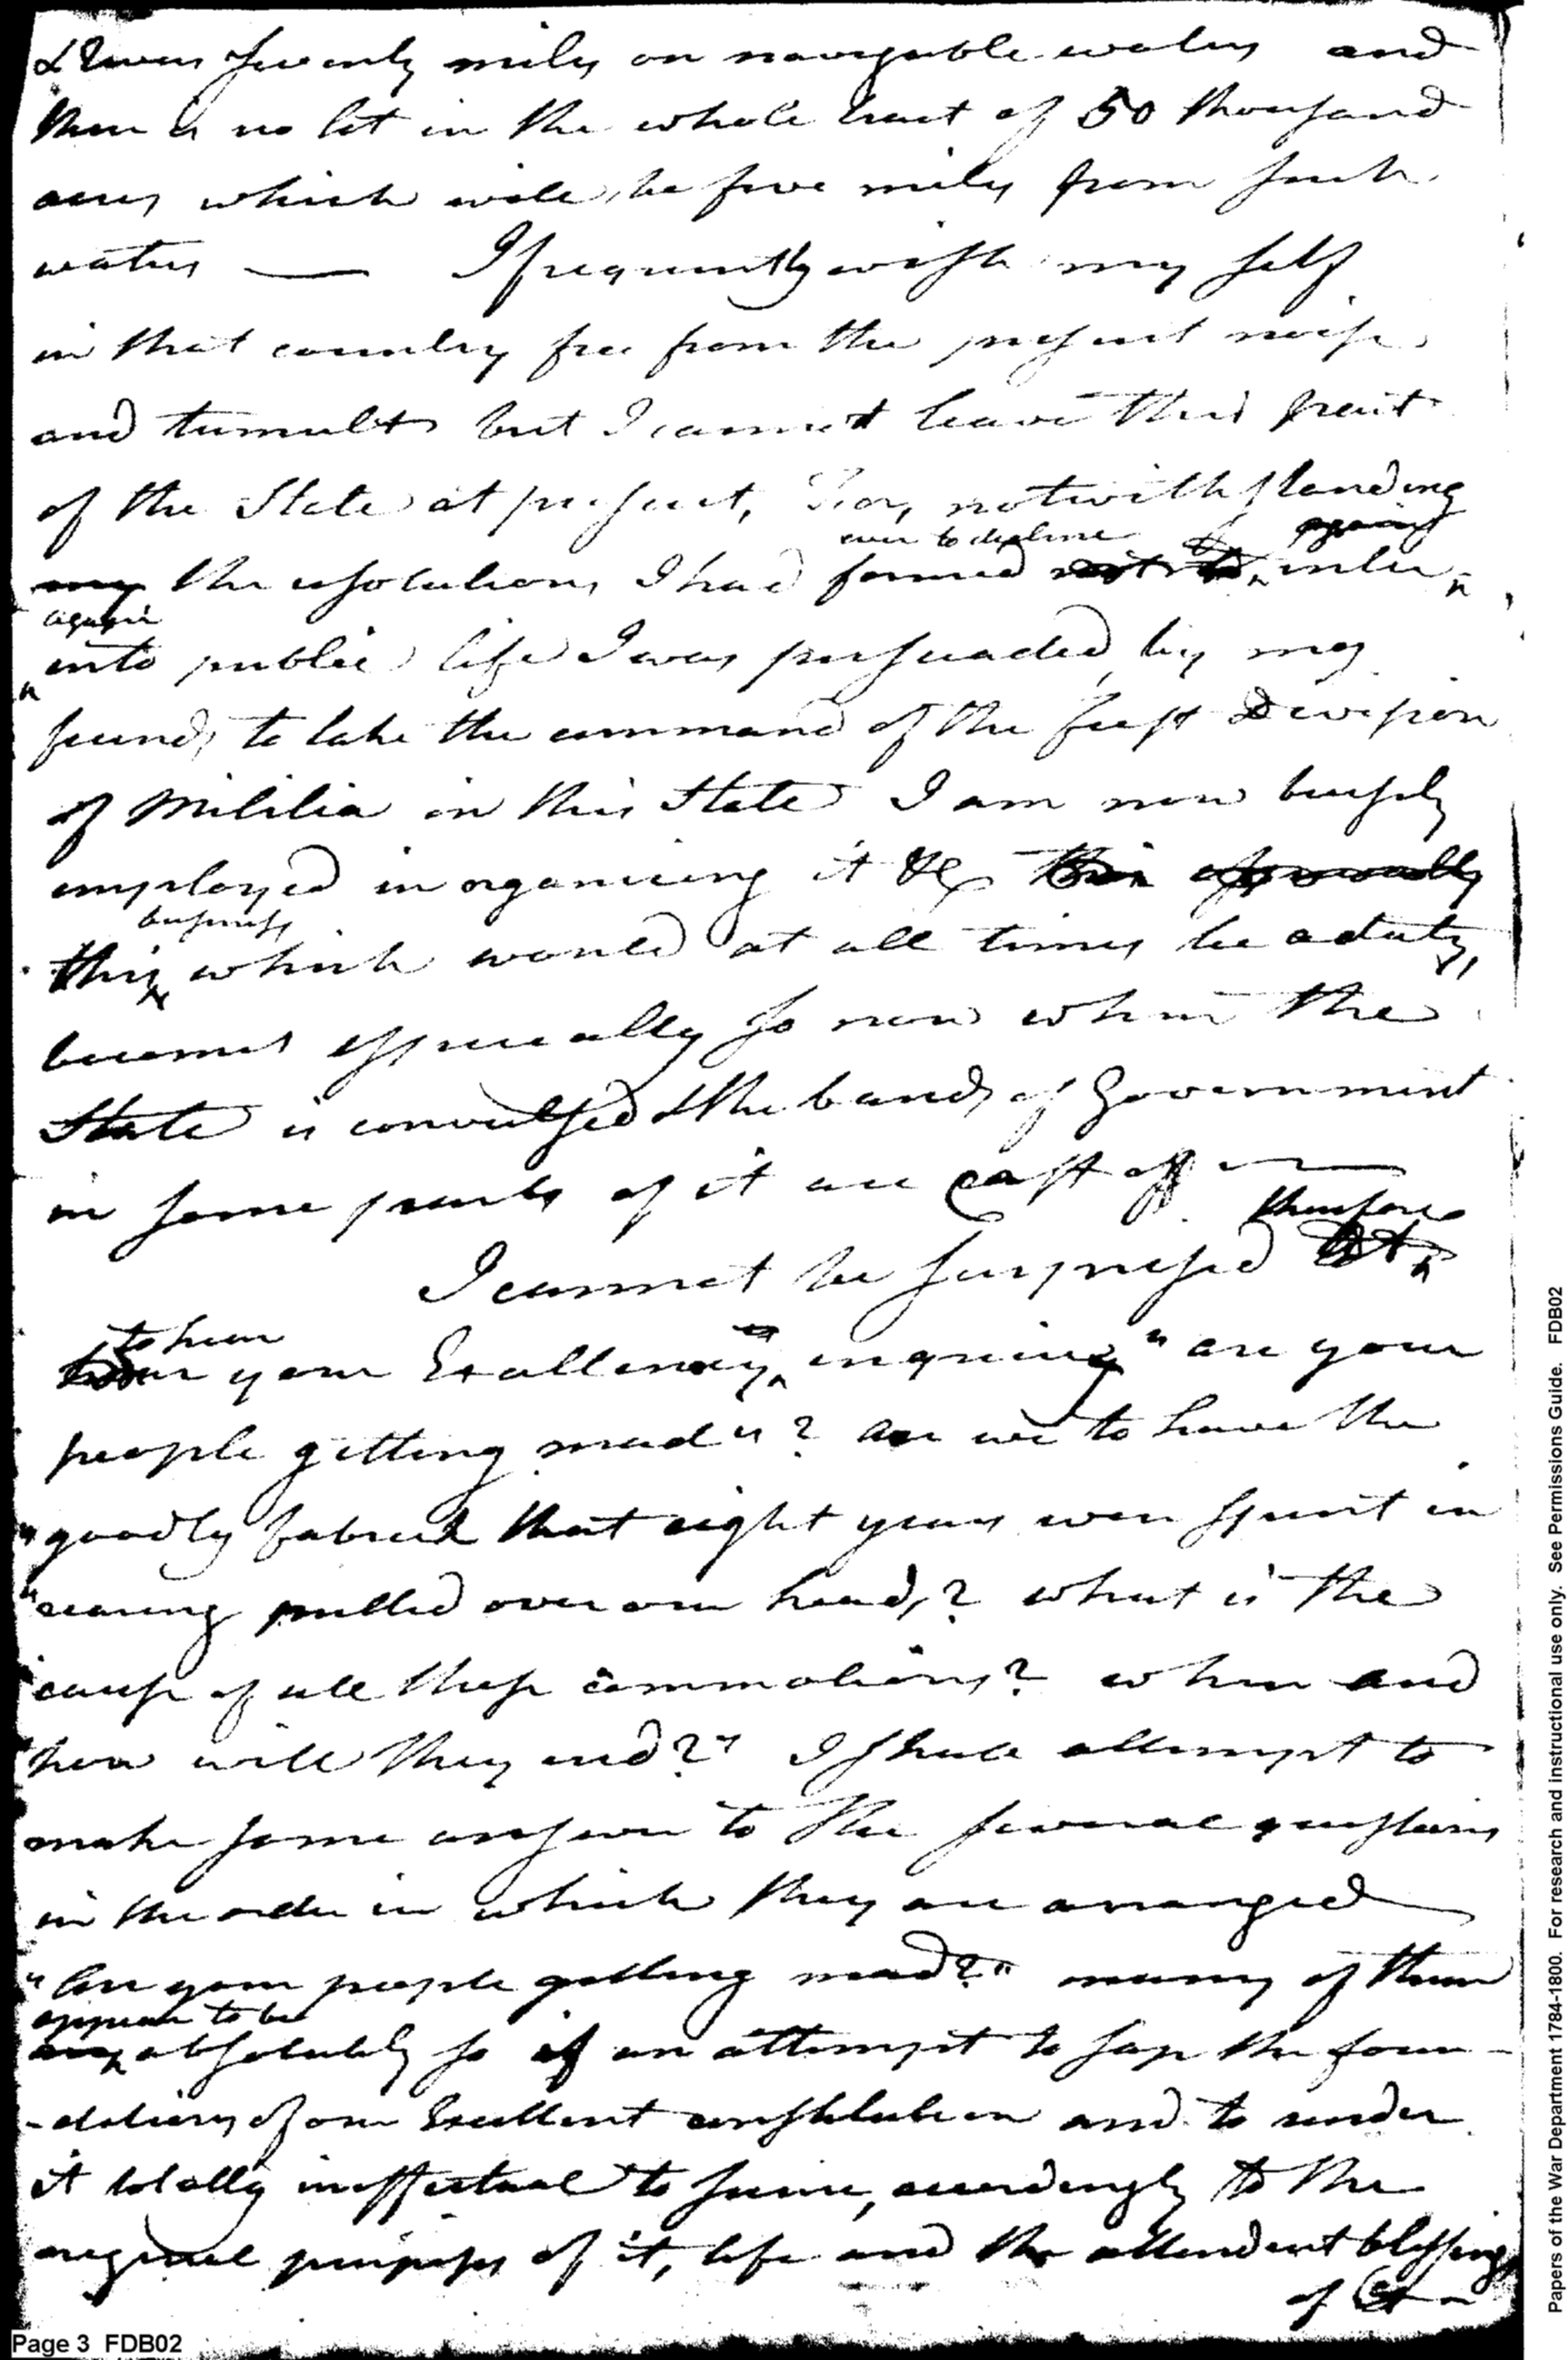 & Rivers Seventy miles on navigable waters and
there is no lot in the whole tract of 50 thousand
acres which will be five miles from such
waters — I frequently wish my self
in that country free from the present noise
and tumult but I cannot leave this part
of the State at present, For, notwithstanding
ever to decline again
my the resolution, I had formed not to enter
again
into public life I was persuaded, by my
friends, to take the command of the first Division
of Militia in this State I am now busily
employed in organising it &c This
business
this which would at all times be a duty,
becomes especially so now when the
State is convulsed & the bands of Government
in some parts of it are cast off —
therefore
I cannot be surprised at
to hear
hear your Excellency, enquiring "are your
people getting mad"? are we to have the
"goodly fabrick that eight years were spent in
"rearing pulled over our heads? what is the
"cause of all these commotions? when and
"how will they end?" I shall attempt to
make some answer to the several questions
in the order in which they are arranged
"Are your people getting mad?" many of them
appear to be
are absolutely so if an attempt to sap the foun-
-dations of our Excellent constitution and to render
it totally ineffectual to secure, accordingly to the
original purposes of it, life and the attendent blessings
of it —
Page 3 FDB02
Papers of the War Department 1784-1800. For research and instructional use only. See Permissions Guide. FDB02